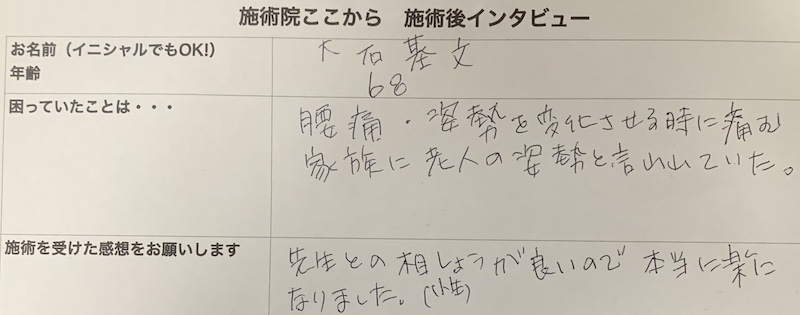 施術院ここから　施術後インタビュー
お名前（イニシャルでもOK!）
大石基文
年齢
68
困っていたことは・・・
腰痛・姿勢を変化させる時に痛む
家族に老人の姿勢と言われていた。
施術を受けた感想をお願いします
先生との相しょうが良いので本当に楽に
なりました。